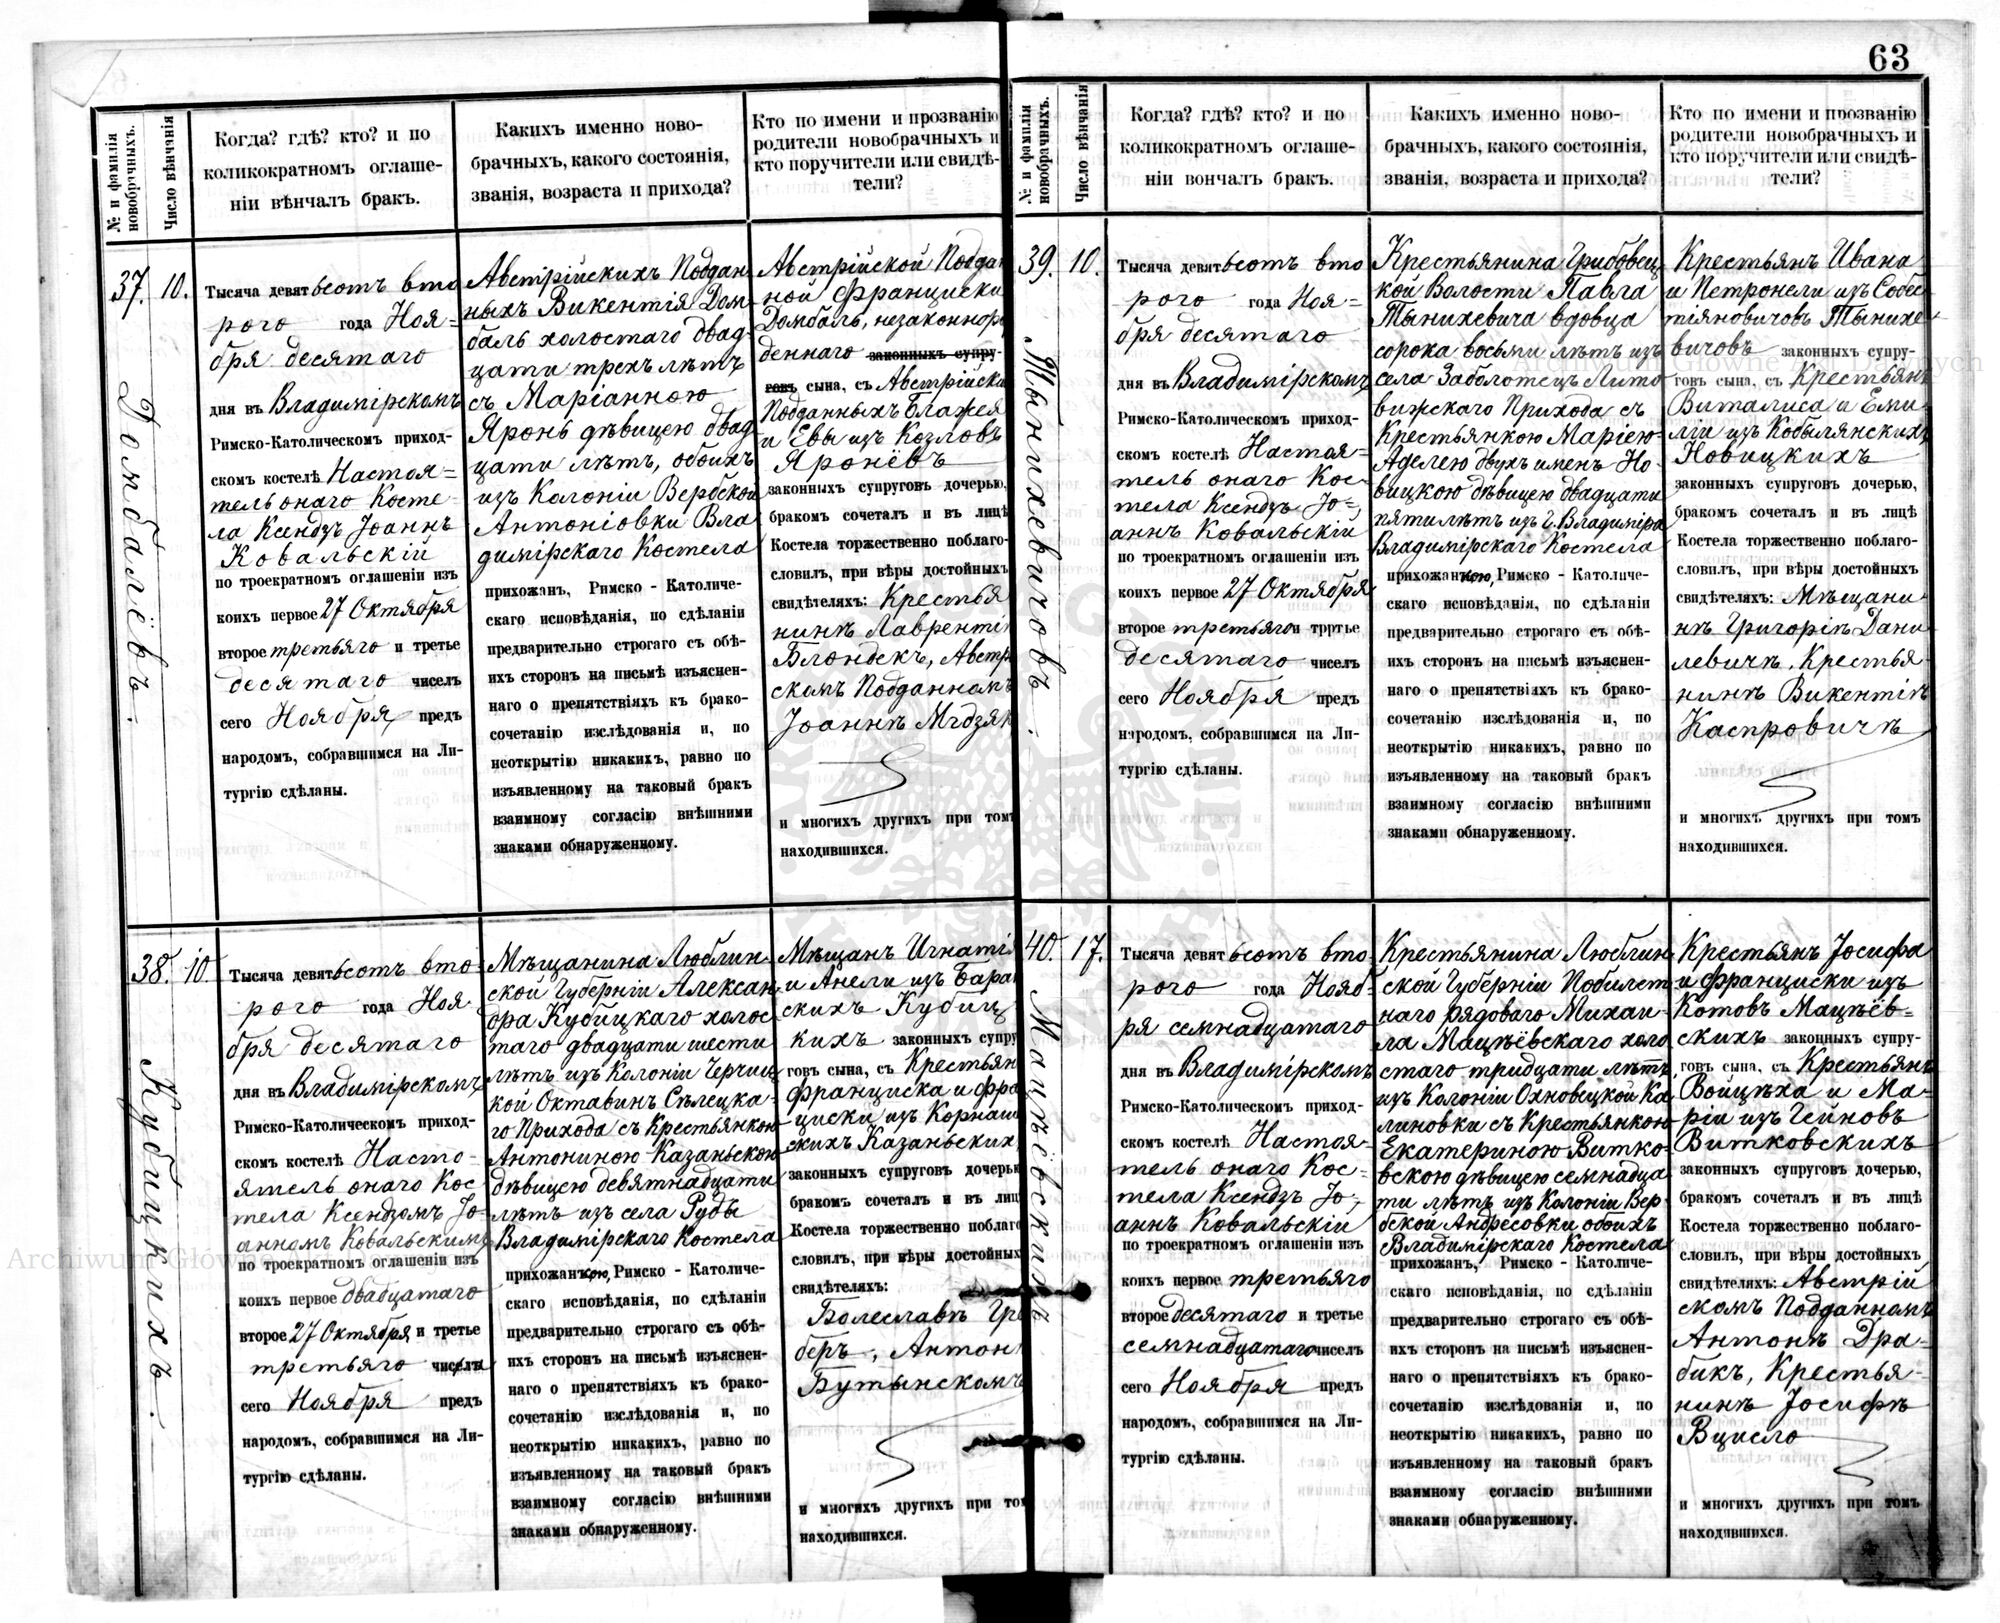 63
№ и фамилія новобрачныхъ.
Число вѣнчанія
Когда? гдѣ? кто? и по
коликократномъ оглаше-
ніи вѣнчалъ бракъ.
Какихъ именно ново-
брачныхъ, какого состоянія,
званія, возраста и прихода?
Кто по имени и прозванію
родители новобрачныхъ и
кто поручители или свидѣ-
тели?
37.
10.
Домбалёвъ.
Тысяча девятьсотъ вто
рого года Ноя=
бря десятаго
дня въ Владимірскомъ
Римско-Католическомъ приход-
скомъ костелѣ Настоя=
тель онаго Косте-
ла Ксендзъ Іоаннъ
Ковальскій
по троекратномъ оглашеніи изъ
коихъ первое 27 Октября
второе третьяго и третье
десятаго чиселъ
сего Ноября предъ
народомъ, собравшимся на Ли-
тургію сдѣланы.
Австрійскихъ Поддан
ныхъ Викентія Дом-
баль холостаго двад-
цати трехъ лѣтъ
съ Маріанною
Яронь дѣвицею двад
цати лѣтъ, обоихъ
изъ Колоніи Вербской
Антоніовки Вла
димірскаго Костела
прихожан, Римско - Католиче-
скаго исповѣданія, по сдѣланіи
предварительно строгаго съ обѣ-
ихъ сторонъ на письмѣ изъяснен-
наго о препятствіяхъ къ брако-
сочетанію изслѣдованія и, по
неоткрытію никакихъ, равно по
изъявленному на таковый бракъ
взаимному согласію внѣшними
знаками обнаруженному.
Австрійской Поддан
ной Франциски
Домбаль, незаконнорож
деннаго законныхъ супру-
говъ сына, съ Австрійски
Подданныхъ Блажея
и Евы изъ Козловъ
Яронёвъ
законныхъ супруговъ дочерью,
бракомъ сочеталъ и въ лицѣ
Костела торжественно поблаго-
словилъ, при вѣры достойныхъ
свидѣтеляхъ: Крестья
нинѣ Лаврентіи
Блондекъ, Австрі
скомъ Подданномъ
Іоаннѣ Мдзяк
и многихъ другихъ при томъ
находившихся.
38.
10.
Кубицкихъ.
Тысяча девятьсотъ вто-
рого года Ноя
бря десятаго
дня въ Владимірскомъ
Римско-Католическомъ приход-
скомъ костелѣ Насто-
ятель онаго Кос
тела Ксендзомъ Іо-
анномъ Ковальскимъ
по троекратномъ оглашеніи изъ
коихъ первое двадцатаго
второе 27 Октября и третье
третьяго чиселъ
сего Ноября предъ
народомъ, собравшимся на Ли-
тургію сдѣланы.
Мѣщанина Люблин-
ской Губерніи Алексан
дра Кубицкаго холос-
таго двадцати шести
лѣтъ изъ Колоніи Черчиц
кой Октавинъ Сѣлецка-
го Прихода съ Крестьянкою
Антониною Казаньскою
дѣвицею девятнадцати
лѣтъ изъ села Руды
Владимірскаго Костела
прихожанкою, Римско - Католиче-
скаго исповѣданія, по сдѣланіи
предварительно строгаго съ обѣ-
ихъ сторонъ на письмѣ изъяснен-
наго о препятствіяхъ къ брако-
сочетанію изслѣдованія и, по
неоткрытію никакихъ, равно по
изъявленному на таковый бракъ
взаимному согласію внѣшними
знаками обнаруженному.
Мѣщанъ Игнатія
и Анели изъ Баран
скихъ Кубиц
кихъ законныхъ супру
говъ сына, съ Крестьян
Франциска и Фран
циски изъ Корнаш
скихъ Казаньских
законныхъ супруговъ дочерью
бракомъ сочеталъ и въ лицѣ
Костела торжественно поблаго
словилъ, при вѣры достойныхъ
свидѣтеляхъ:
Болеславъ Гре
беръ, Антон
Бутынскомъ
и многихъ другихъ при том
находившихся.
№ и фамилія новобрачныхъ.
Число вѣнчанія
Когда? гдѣ? кто? и по
коликократномъ оглаше-
ніи вончалъ бракъ.
Какихъ именно ново-
брачныхъ, какого состоянія,
званія, возраста и прихода?
Кто по имени и прозванію
родители новобрачныхъ и
кто поручители или свидѣ-
тели?
39.
10.
Тынихевичовъ.
Тысяча девятьсотъ вто
рого года Ноя=
бря десятаго
дня въ Владимірскомъ
Римско-Католическомъ приход-
скомъ костелѣ Настоя=
тель онаго Кос-
тела Ксендзъ Іо=
аннъ Ковальскій
по троекратномъ оглашеніи изъ
коихъ первое 27 Октября
второе третьяго и третье
десятаго чиселъ
сего Ноября предъ
народомъ, собравшимся на Ли-
тургію сдѣланы.
Крестьянина Грибовец
кой Волости Павла
Тынихевича вдовца
сорока восьми лѣтъ изъ
села Заболотецъ Лито
вижскаго Прихода съ
Крестьянкою Маріею-
Аделею двухъ именъ Но-
вицкою дѣвицею двадцати
пяти лѣтъ изъ г. Владиміра
Владимірскаго Костела
прихожанкою, Римско - Католиче-
скаго исповѣданія, по сдѣланіи
предварительно строгаго съ обѣ-
ихъ сторонъ на письмѣ изъяснен-
наго о препятствіяхъ къ брако-
сочетанію изслѣдованія и, по
неоткрытію никакихъ, равно по
изъявленному на таковый бракъ
взаимному согласію внѣшними
знаками обнаруженному.
Крестьянъ Ивана
и Петронели изъ Собес
тіяновичовъ Тынихе-
вичовъ законныхъ супру-
говъ сына, съ Крестьянъ
Виталиса и Еми
ліи изъ Кобылянскихъ
Новицкихъ
законныхъ супруговъ дочерью,
бракомъ сочеталъ и въ лицѣ
Костела торжественно поблаго-
словилъ, при вѣры достойныхъ
свидѣтеляхъ: Мѣщани-
нѣ Григоріѣ Дани
левичѣ, Крестья-
нинѣ Викентіѣ
Каспровичѣ
и многихъ другихъ при томъ
находившихся.
40.
17.
Мацѣёвскихъ
Тысяча девятьсотъ вто
рого года Нояб-
ря семнадцатаго
дня въ Владимірскомъ
Римско-Католическомъ приход-
скомъ костелѣ Настоя-
тель онаго Кос-
тела Ксендзъ Іо-
аннъ Ковальскій
по троекратномъ оглашеніи изъ
коихъ первое третьяго
второе десятаго и третье
семнадцатаго чиселъ
сего Ноября предъ
народомъ, собравшимся на Ли-
тургію сдѣланы.
Крестьянина Люблин
ской Губерніи Побилет
наго рядоваго Михаи-
ла Мацѣёвскаго холо
стаго тридцати лѣтъ
изъ Колоніи Охновецкой Ка
линовки съ Крестьянкою
Екатериною Витко-
вскою дѣвицею семнадца
ти лѣтъ изъ Колоніи Вер-
бской Андресовки обоихъ
Владимірскаго Костела
прихожан, Римско - Католиче-
скаго исповѣданія, по сдѣланіи
предварительно строгаго съ обѣ-
ихъ сторонъ на письмѣ изъяснен-
наго о препятствіяхъ къ брако-
сочетанію изслѣдованія и, по
неоткрытію никакихъ, равно по
изъявленному на таковый бракъ
взаимному согласію внѣшними
знаками обнаруженному.
Крестьянъ Іосифа
и Франциски изъ
Котовъ Мацѣёв=
скихъ законныхъ супру-
говъ сына, съ Крестьянъ
Войцѣха и Ма-
ріи изъ Гейновъ
Витковскихъ
законныхъ супруговъ дочерью,
бракомъ сочеталъ и въ лицѣ
Костела торжественно поблаго-
словилъ, при вѣры достойныхъ
свидѣтеляхъ: Австрій
скомъ Подданномъ
Антонѣ Дра-
бикъ, Крестья-
нинѣ Іосифѣ
Вцисло
и многихъ другихъ при томъ
находившихся.
Archiwum Główne Akt Dawnych
Archiwum Główne Akt Dawnych